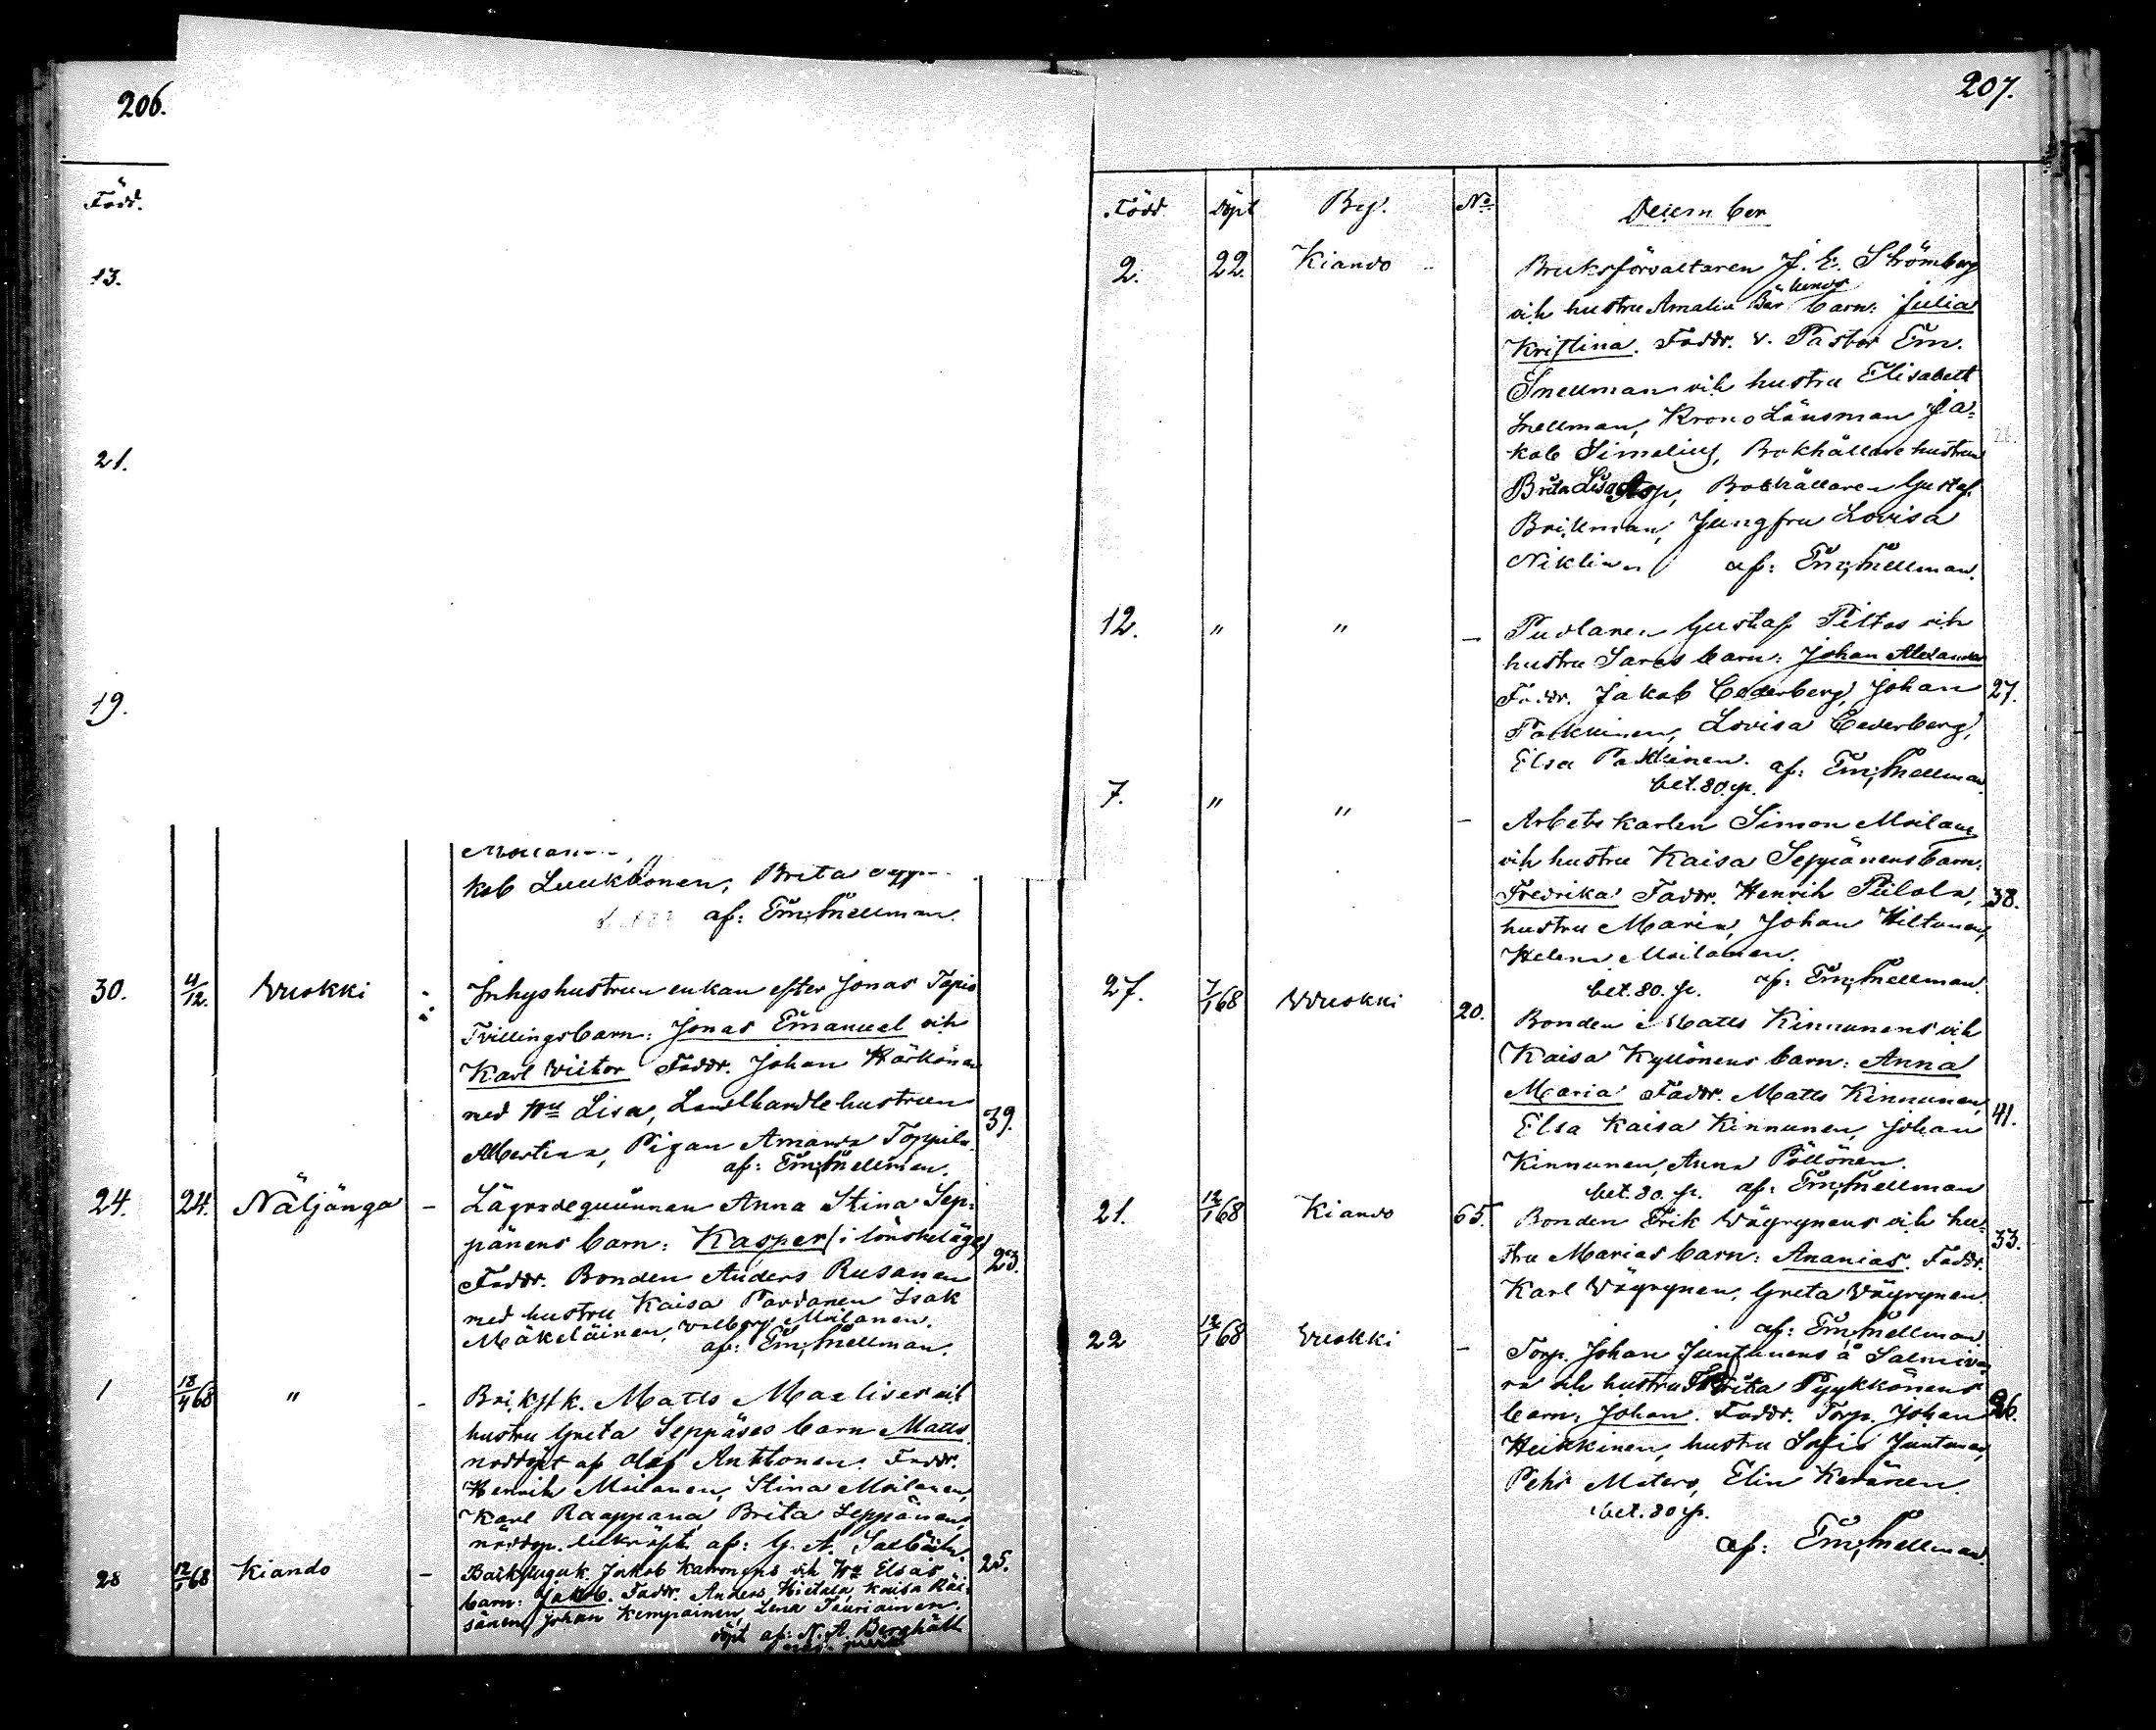 206.
Född.
13.
21.
19.
kob Luukkonen, Brita
af: Em. Snellman.
30. 4/12. Wuokki Inhyshustrun enkan efter Jonas Tapio
Tvillingsbarn: Jonas Emanuel och
Karl Victor Faddr. Johan Härkönen
med Hu Lisa, Landthandle hustrun 39.
Albertina, Pigan Amanda Toppila.
af: Em. Snellman.
24. 24. Näljänga – Lägradequinnan Anna Stina Sep-
pänens barn: Kasper (i lönskeläge) 23.
Faddr. Bonden Anders Rusanen
med hustru Kaisa Pardanen Isak
Mäkeläinen, Walborg Moilanen.
af: Em. Snellman.
1 18/4 68 " - Matts
hustru Greta Seppäses barn Matts
nöddöpt af Olof Anttonen. Faddr.
Henrik Moilanen, Stina Moilanen,
Karl Raappana Brita Seppänen,
af: G. A.
28 12/1 68 Kiando – Jakob och Hu Elsas 25.
barn: Jakob. Faddr. Anders Hietala, Kaisa Räi-
sänen, Johan Kempainen, Lena Tauriainen.
döpt af: N. A. Berghäll
207.
Född Döpt By. No December
2. 22. Kiando Bruksförvaltaren J. E. Strömberg
och hustru Amalia barn: Julia
Kristina. Faddr. v. Pastor Em.
Snellman och hustru Elisabett
Snellman, Krono Länsman Ja-
kob Simelius, Bokhållare hustrun
Brita Lisa Asp, Bokhållaren Gustaf
Jungfru Lovisa
Niklin af: Em. Snellman.
12. " " – Pudlaren Gustaf Piltos och
hustru Saras barn: Johan Alexander
Faddr. Jakob Cederberg, Johan 27.
Pakkinen, Lovisa Cederberg,
Elsa Pakkinen. af: Em. Snellman
bet. 80. p.
7. " " – Arbets karlen Simon Moilas
och hustru Kaisa Seppänens barn:
Fredrika Faddr. Henrik Piilola, 38.
hustru Maria, Johan Hiltunen,
Helena Moilanen.
bet. 80. p. af: Em. Snellman.
27. 7/1 68 Wuokki 20. Bonden Matts Kinnunens och
Kaisa Kyllönens barn: Anna
Maria Faddr. Matts Kinnunen, 41.
Elsa Kaisa Kinnunen, Johan
Kinnunen, Anna Pöllönen.
bet. 80. p. af: Em. Snellman
21. 12/1 68 Kiando 65. Bonden Erik Wäyrynens och hu-
stru Marias barn: Ananias. Faddr. 33.
Karl Wäyrynen, Greta Wäyrynen.
af: Em. Snellman
22 12/1 68 Wuokki – Torp. Johan Juntunens å Salmiva-
ra och hustru Brita Pyykkönens
barn: Johan. Faddr. Torp. Johan 26.
Heikkinen, hustru Sofia Juntunen,
Pehr Matero, Elin Keränen.
bet. 80 p.
af: Em. Snellman.